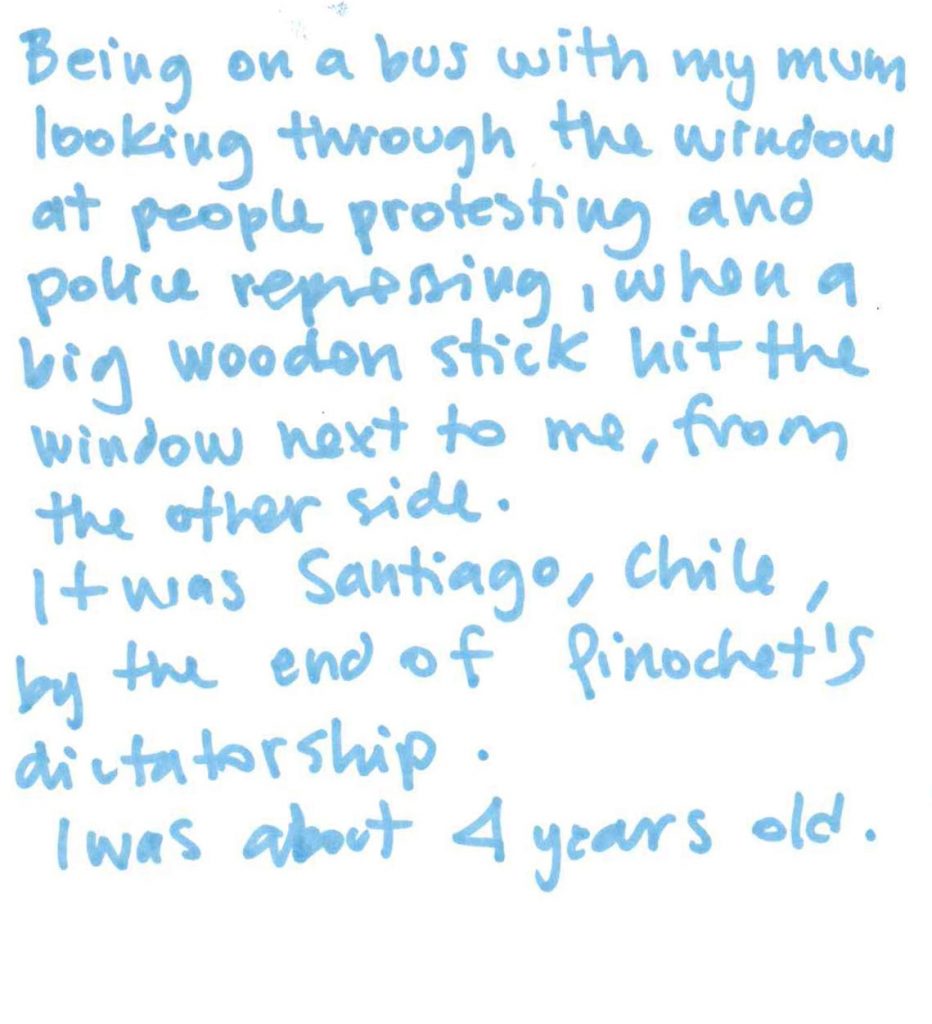 Being on a bus with my mum
looking through the window
at people protesting and
police repressing, when a
big wooden stick hit the
window next to me, from
the other side.
It was Santiago, Chile,
by the end of Pinochet's
dictatorship.
I was about 4 years old.